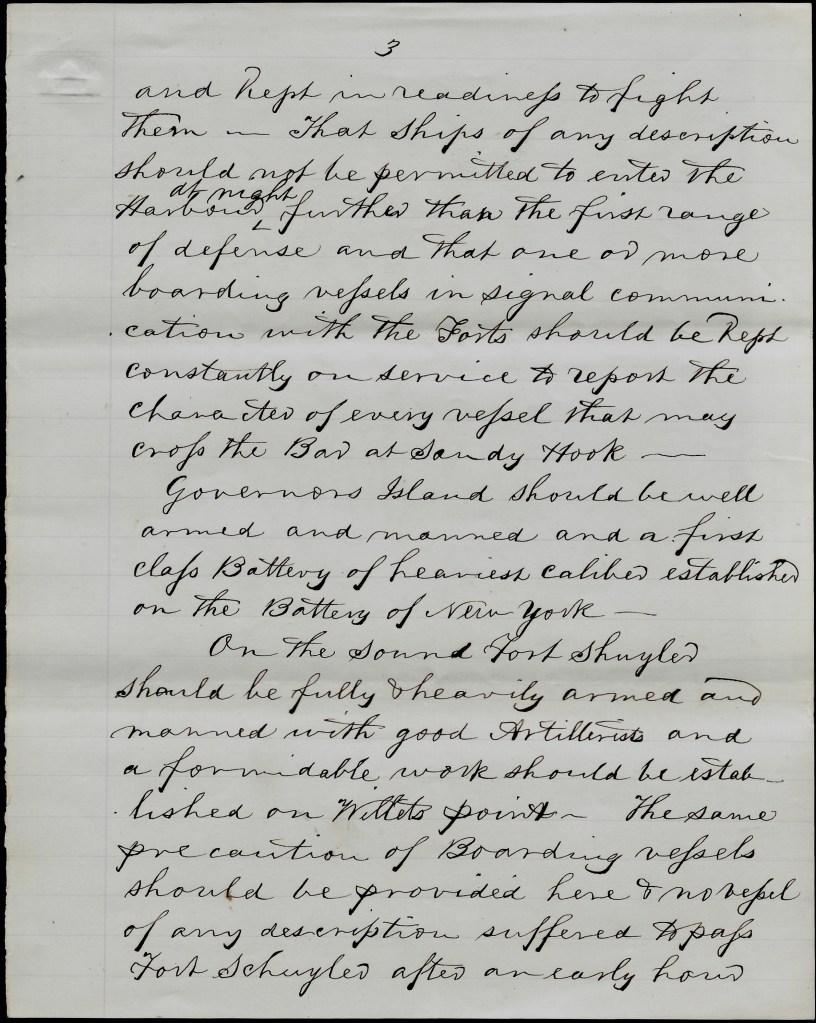 3
and Kept in readiness to fight
them — That ships of any description
should not be permitted to enter the
at night
Harbour ‸ further than the first range
of defense and that one or more
boarding vessels in signal communi-
-cation with the Forts should be Kept
constantly on service to report the
character of every vessel that may
cross the Bar at Sandy Hook —
Governors Island should be well
armed and manned and a first
class Battery of heaviest caliber established
on the Battery of New York —
On the sound Fort Shuyler
should be fully & heavily armed and
manned with good Artillerists and
a formidable work should be estab-
-lished on Willets point — The same
precaution of Boarding vessels
should be provided here & no vessel
of any description suffered to pass
Fort Schuyler after an early hour